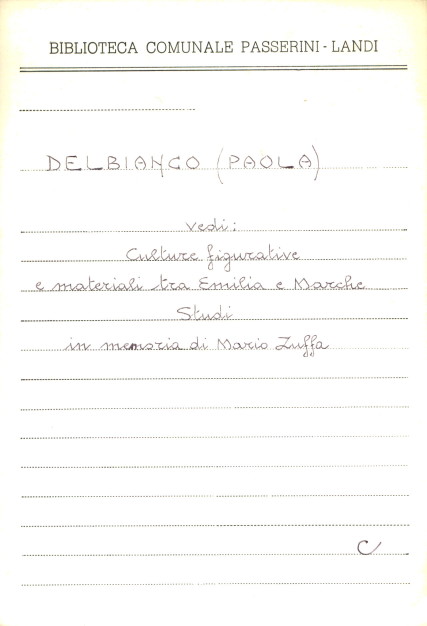 BIBLIOTECA COMUNALE PASSERINI - LANDI
DELBIANCO (PAOLA)
vedi:
Culture figurative
e materiali tra Emilia e Marche
Studi
in memoria di Mario Zuffa
C